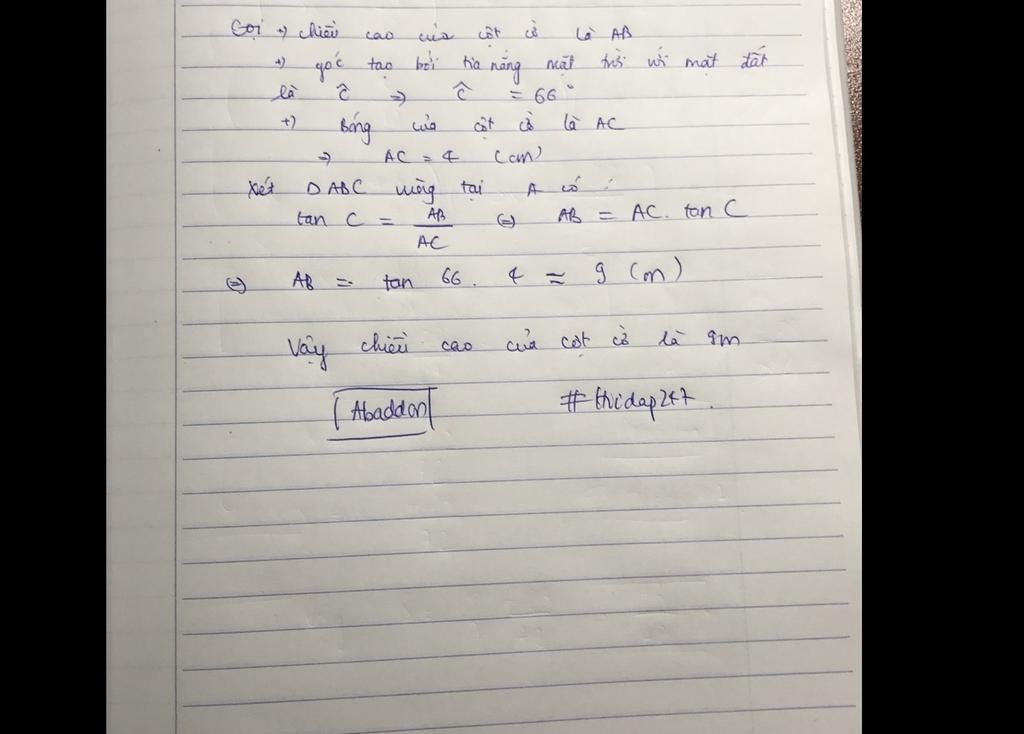 Gọi +) chiều cao của cột cờ là AB
+) góc tạo bởi tia nắng mặt trời với mặt đất
là Ĉ => Ĉ = 66°
+) Bóng của cột cờ là AC
=> AC = 4 (cm)
Xét ΔABC vuông tại A có :
tan C = AB/AC (=) AB = AC. tan C
(=) AB = tan 66. 4 ≈ 9 (m)
Vậy chiều cao của cột cờ là 9m
Abaddon #hoidap247.